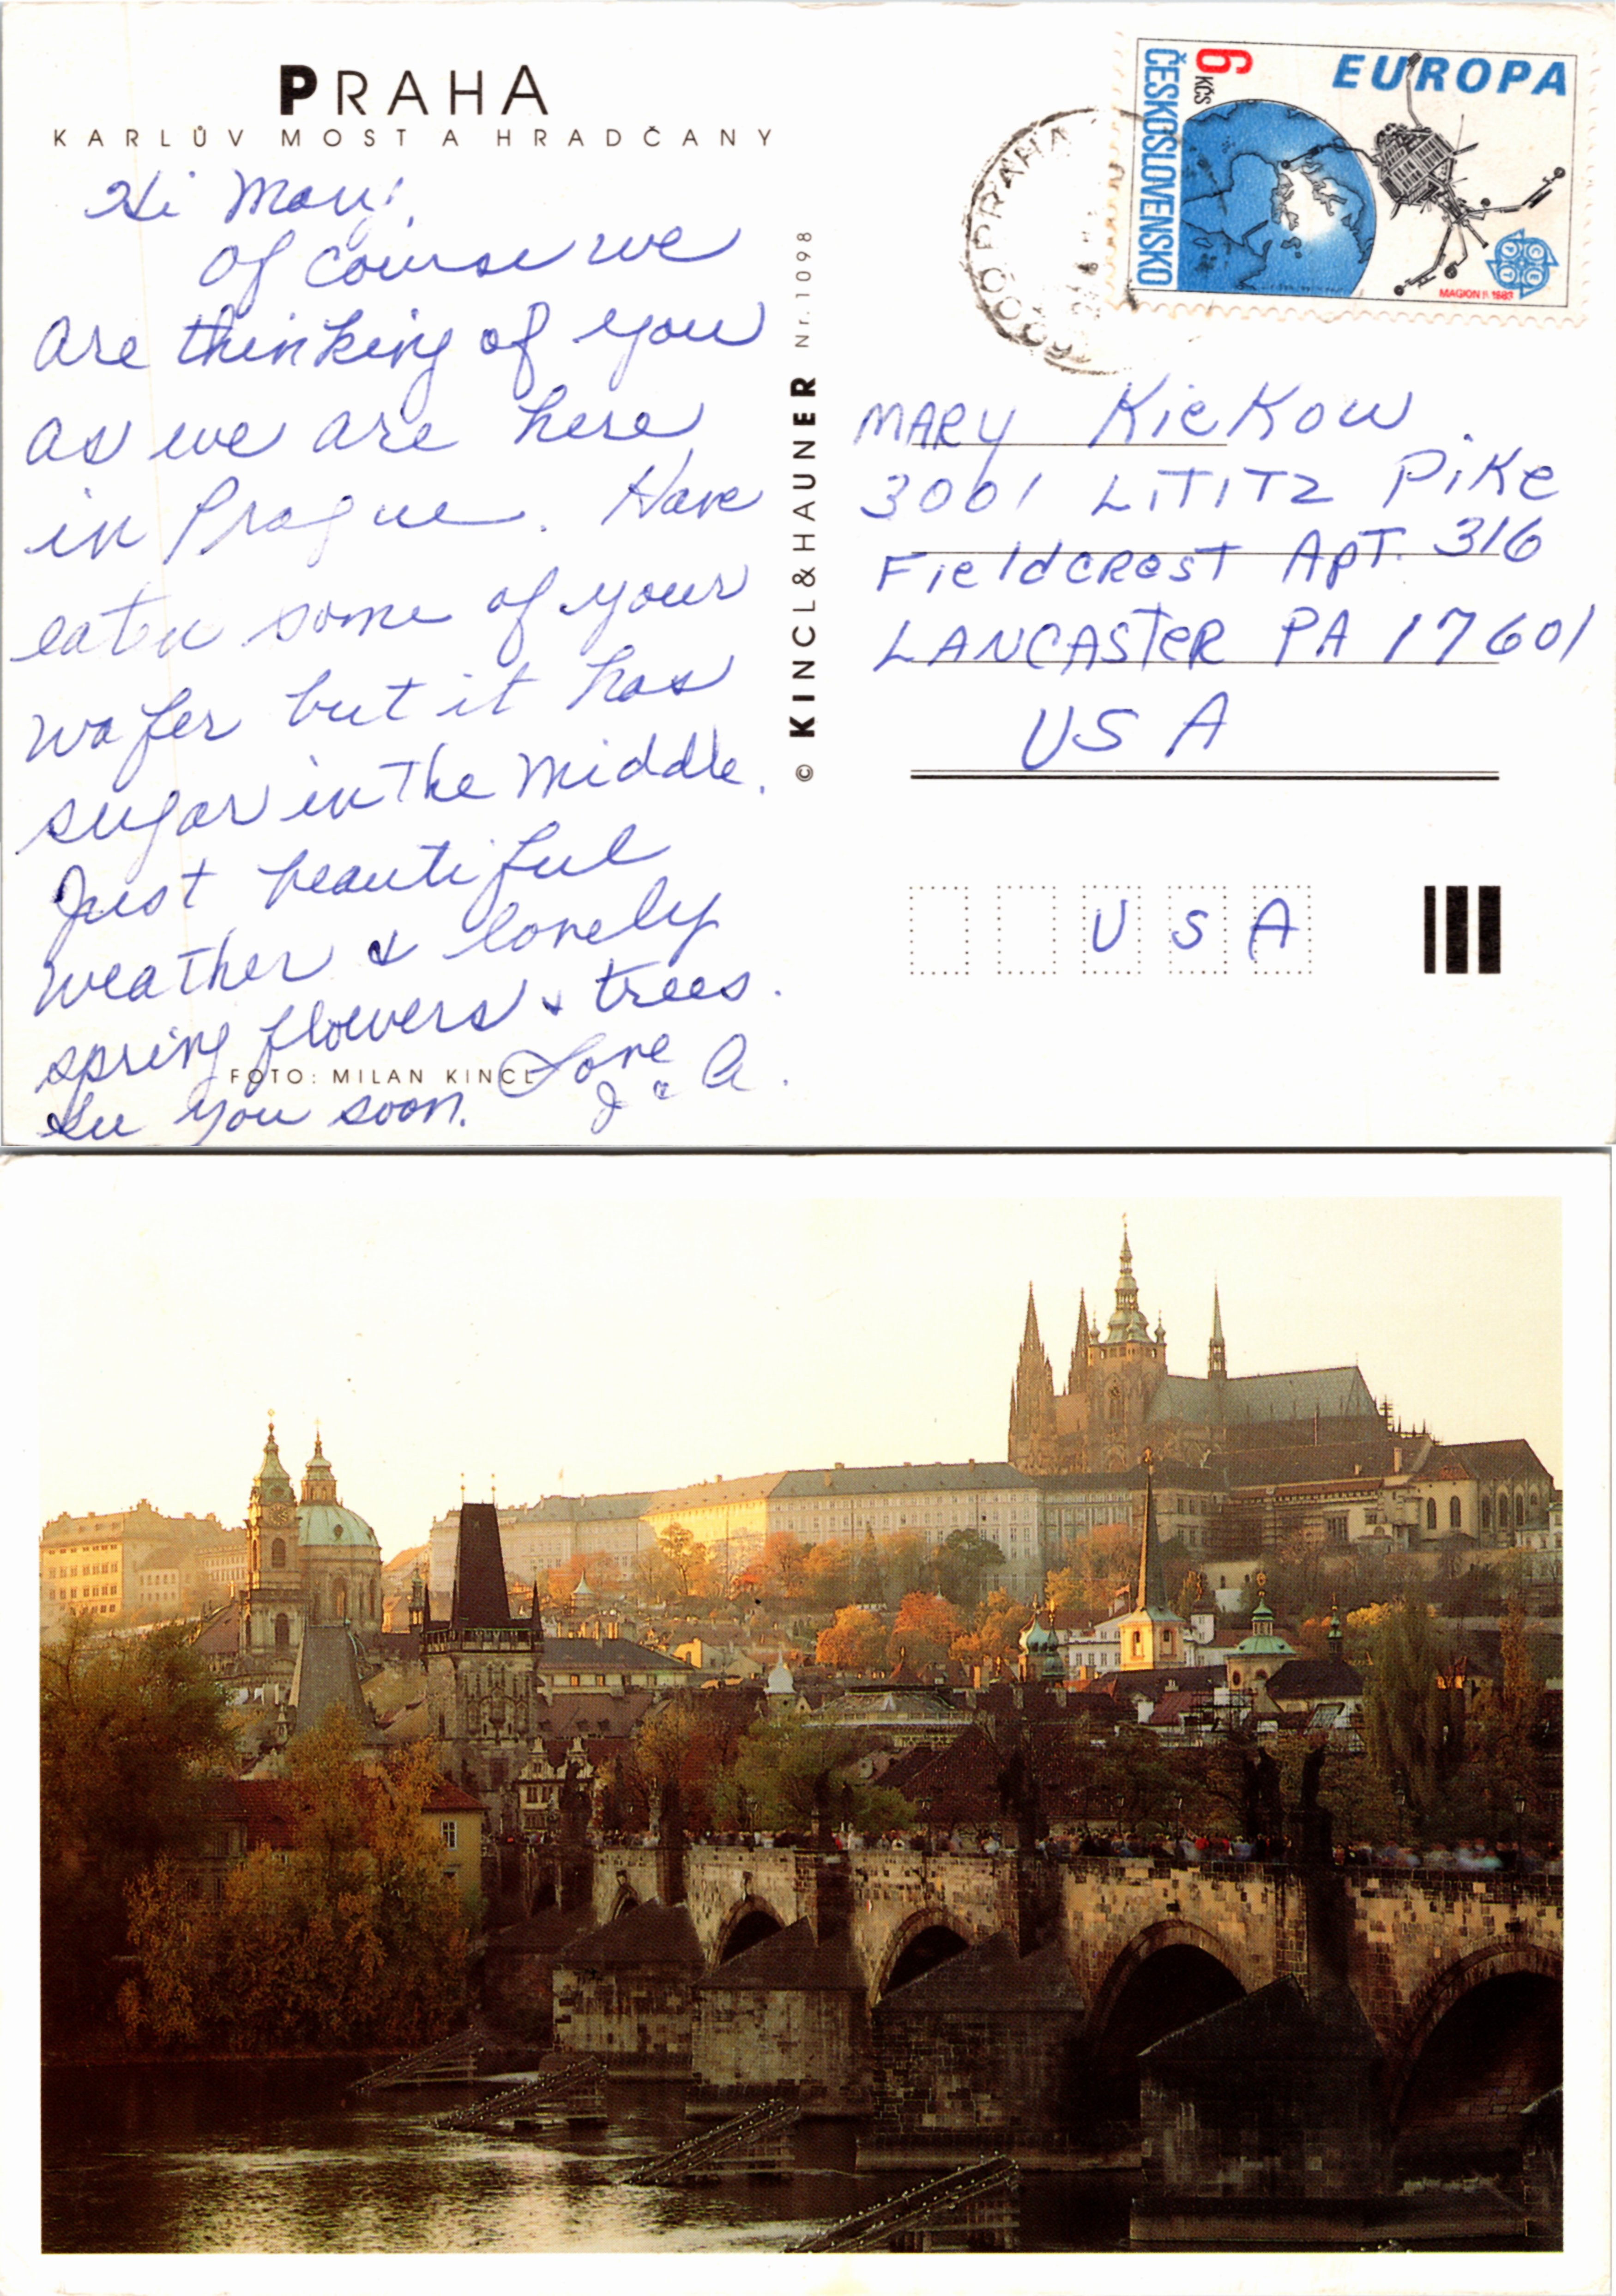 PRAHA
KARLŮV MOST A HRADČANY
Hi Mary!
Of course we
are thinking of you
as we are here
in Prague. Have
eaten some of your
wafer but it has
sugar in the middle.
Just beautiful
weather & lovely
spring flowers & trees.
See you soon. Love
J & A.
FOTO: MILAN KINCL
© KINCL & HAUNER Nr. 1098
PRAHA
ČESKOSLOVENSKO
6 KČS
EUROPA
MAGION II. 1989
MARY KieKow
3001 LITITZ PiKe
Fieldcrest Apt. 316
LANCASTER PA 17601
USA
USA